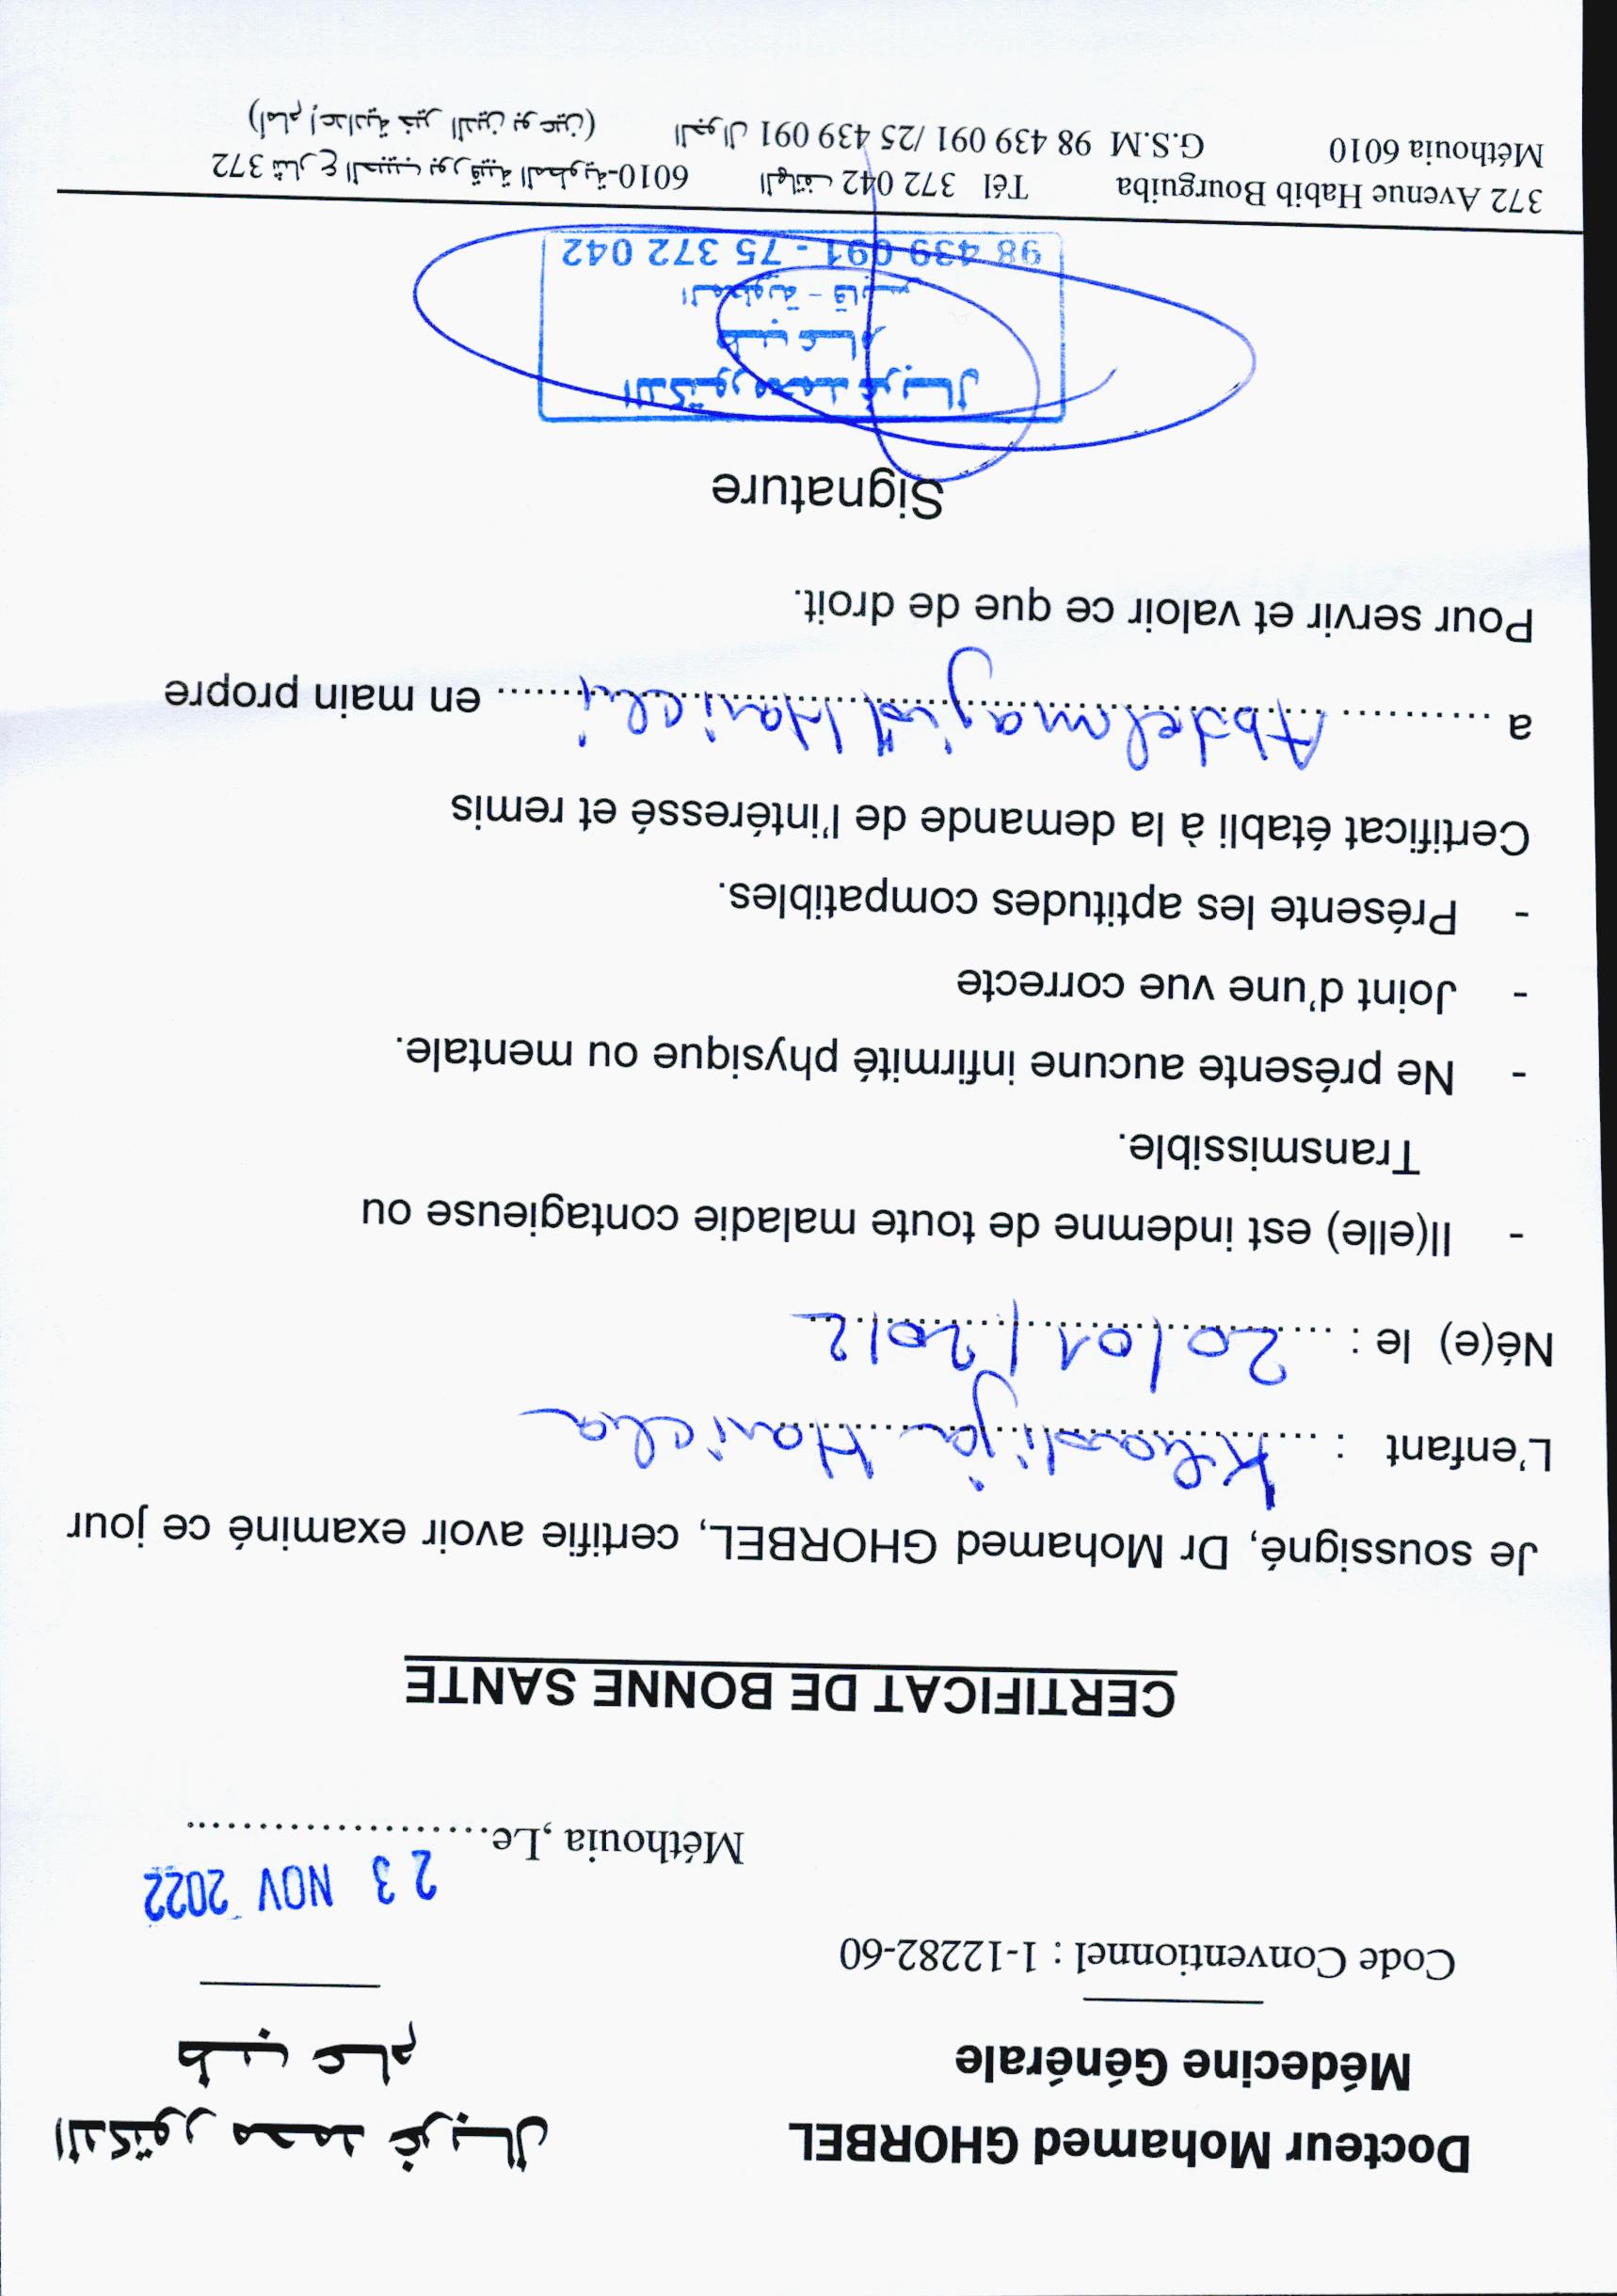 Docteur Mohamed GHORBEL الدكتور محمد غربال
Médecine Générale طب عام
Code Conventionnel : 1-12282-60
23 NOV 2022
Méthouia ,Le......................
CERTIFICAT DE BONNE SANTE
Je soussigné, Dr Mohamed GHORBEL, certifie avoir examiné ce jour
L'enfant : Khadija Haricha
Né(e) le : 20/01/2012
- Il(elle) est indemne de toute maladie contagieuse ou
Transmissible.
- Ne présente aucune infirmité physique ou mentale.
- Joint d'une vue correcte
- Présente les aptitudes compatibles.
Certificat établi à la demande de l'intéressé et remis
a Abdelmagid Harichi en main propre
Pour servir et valoir ce que de droit.
Signature
الدكتور محمد غربال
طب عام
المطوية - قابس
98 439 091 - 75 372 042
372 Avenue Habib Bourguiba Tél 372 042 الهاتف 372 شارع الحبيب بورقيبة المطوية-6010
Méthouia 6010 G.S.M 98 439 091 /25 439 091 الجوال (أمام إعدادية خير الدين بوعين)